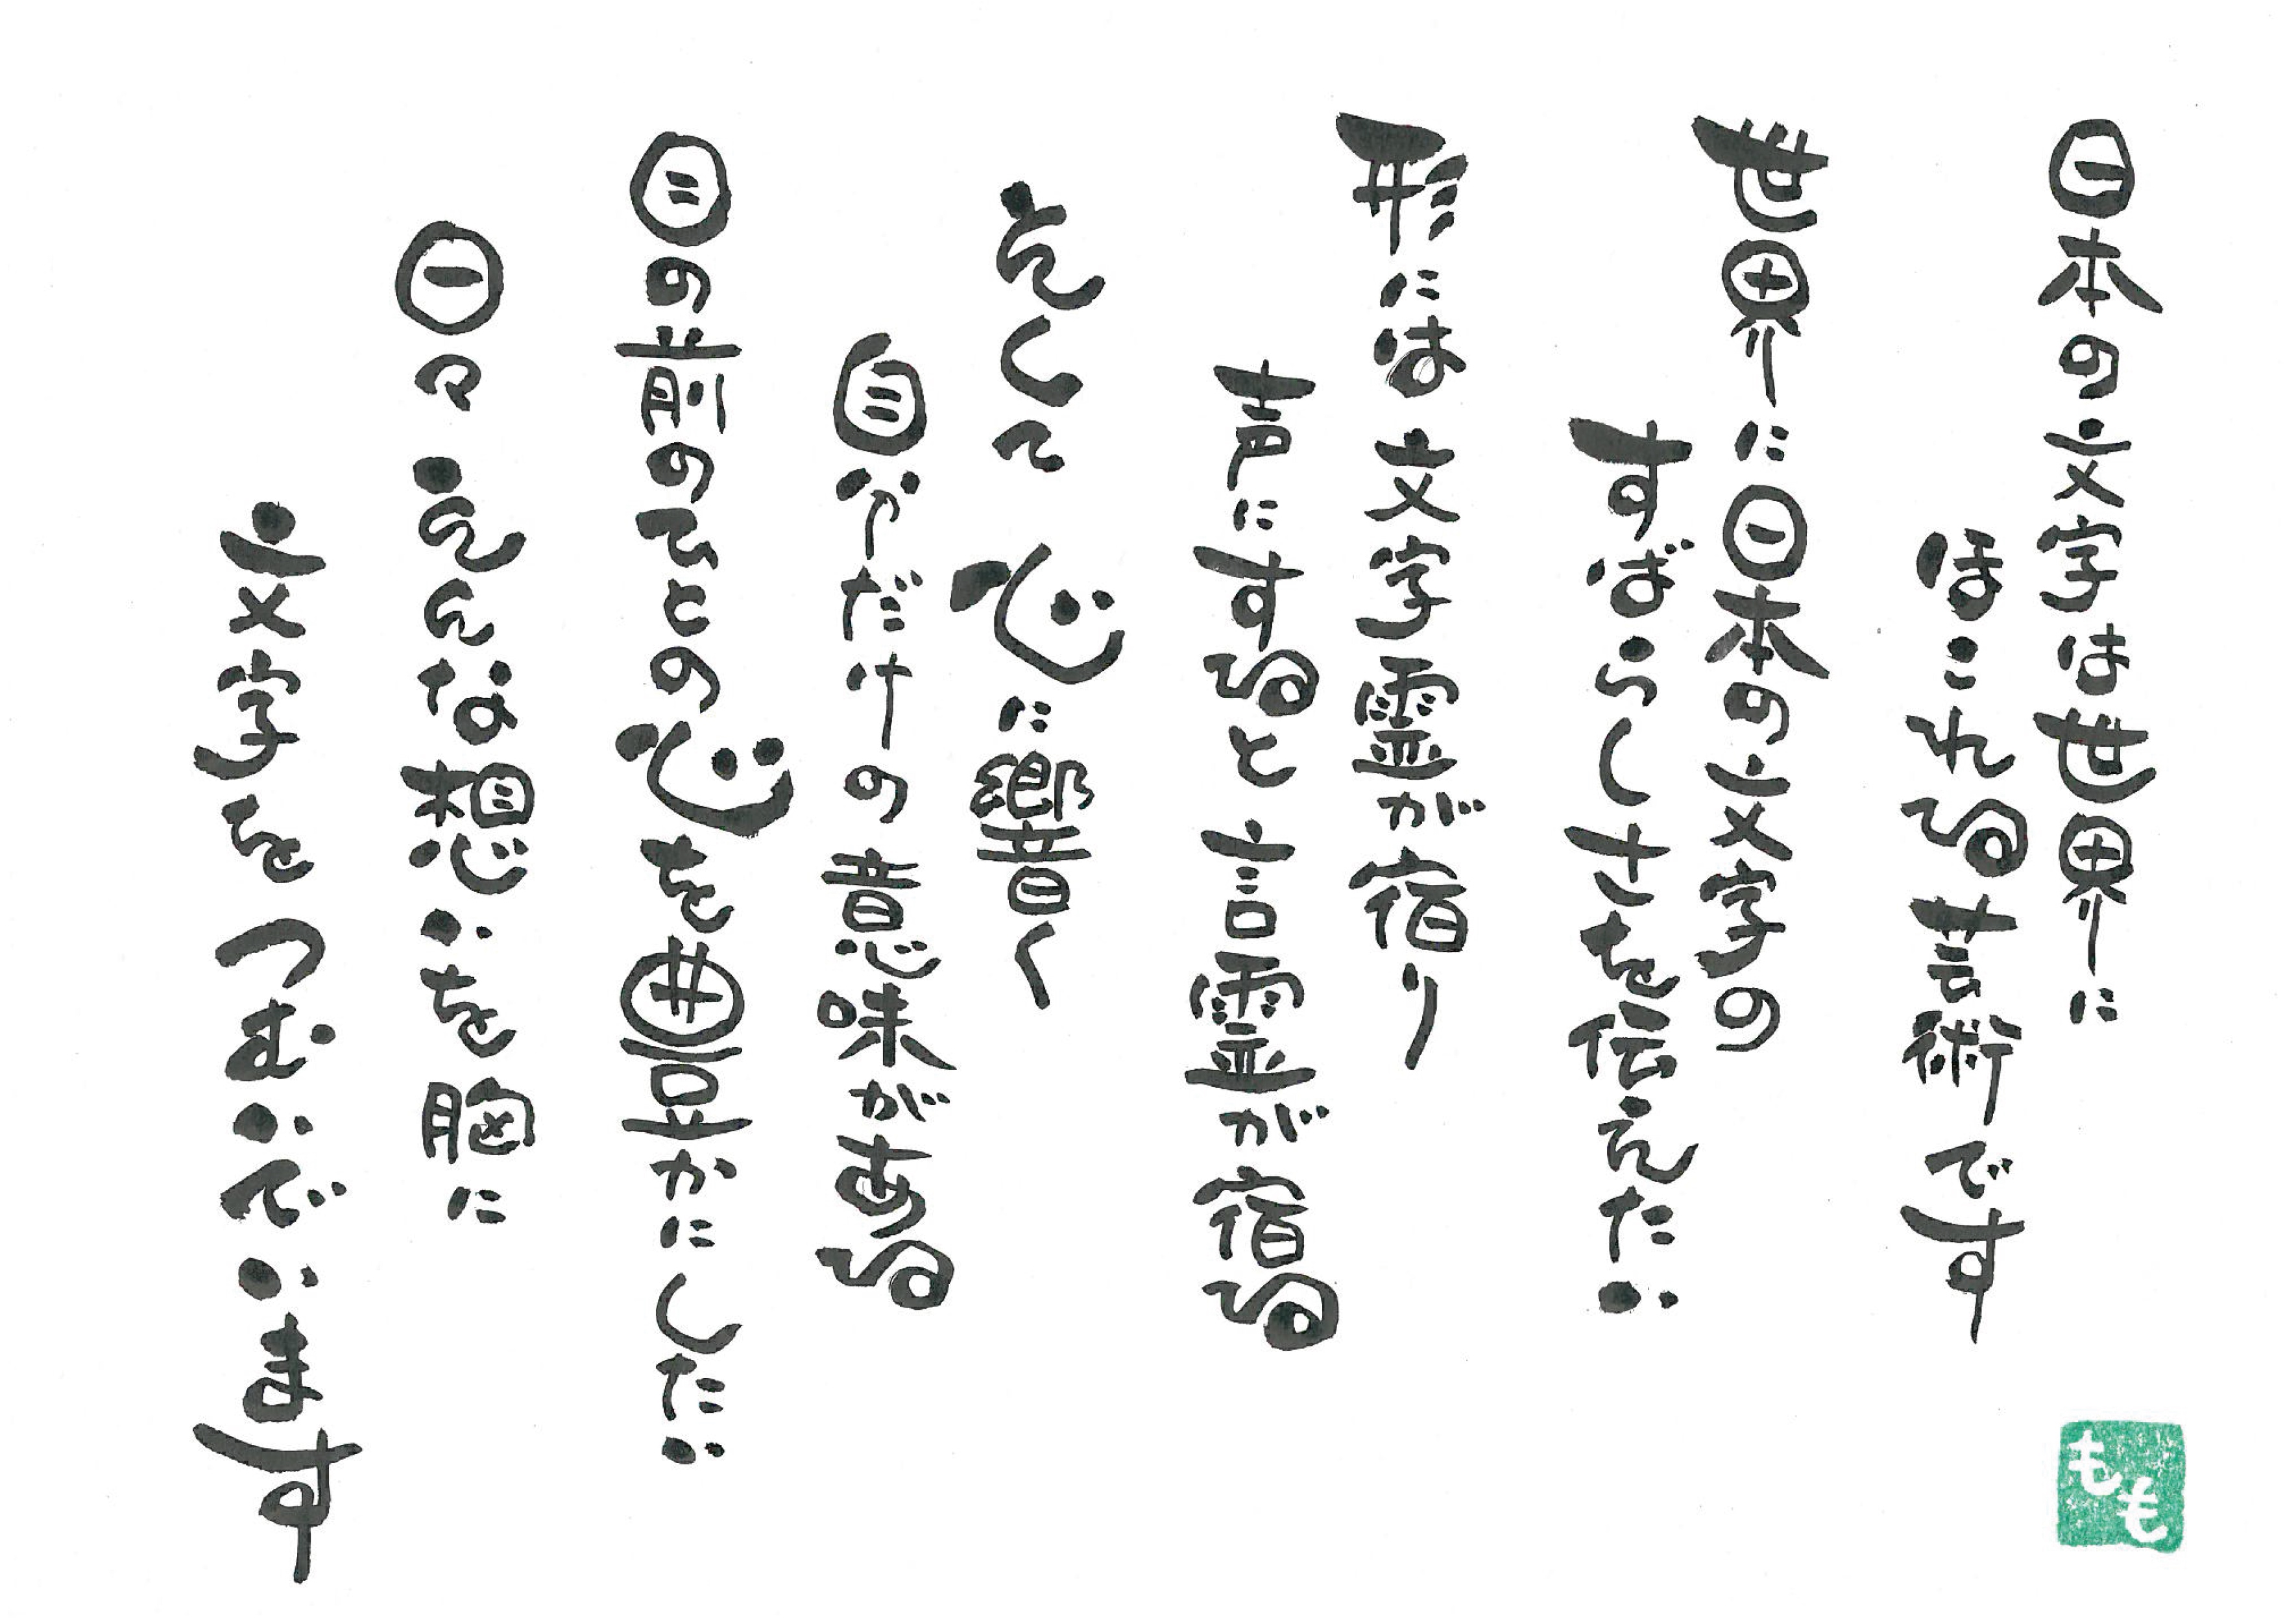 日本の文字は世界に
ほこれる芸術です
世界に日本の文字の
すばらしさを伝えたい
形には 文字霊が宿り
声にすると 言霊が宿る
そして 心に響く
自分だけの意味がある
目の前のひとの心を豊かにしたい
日々 そんな想いを胸に
文字を つむいでいます
もも